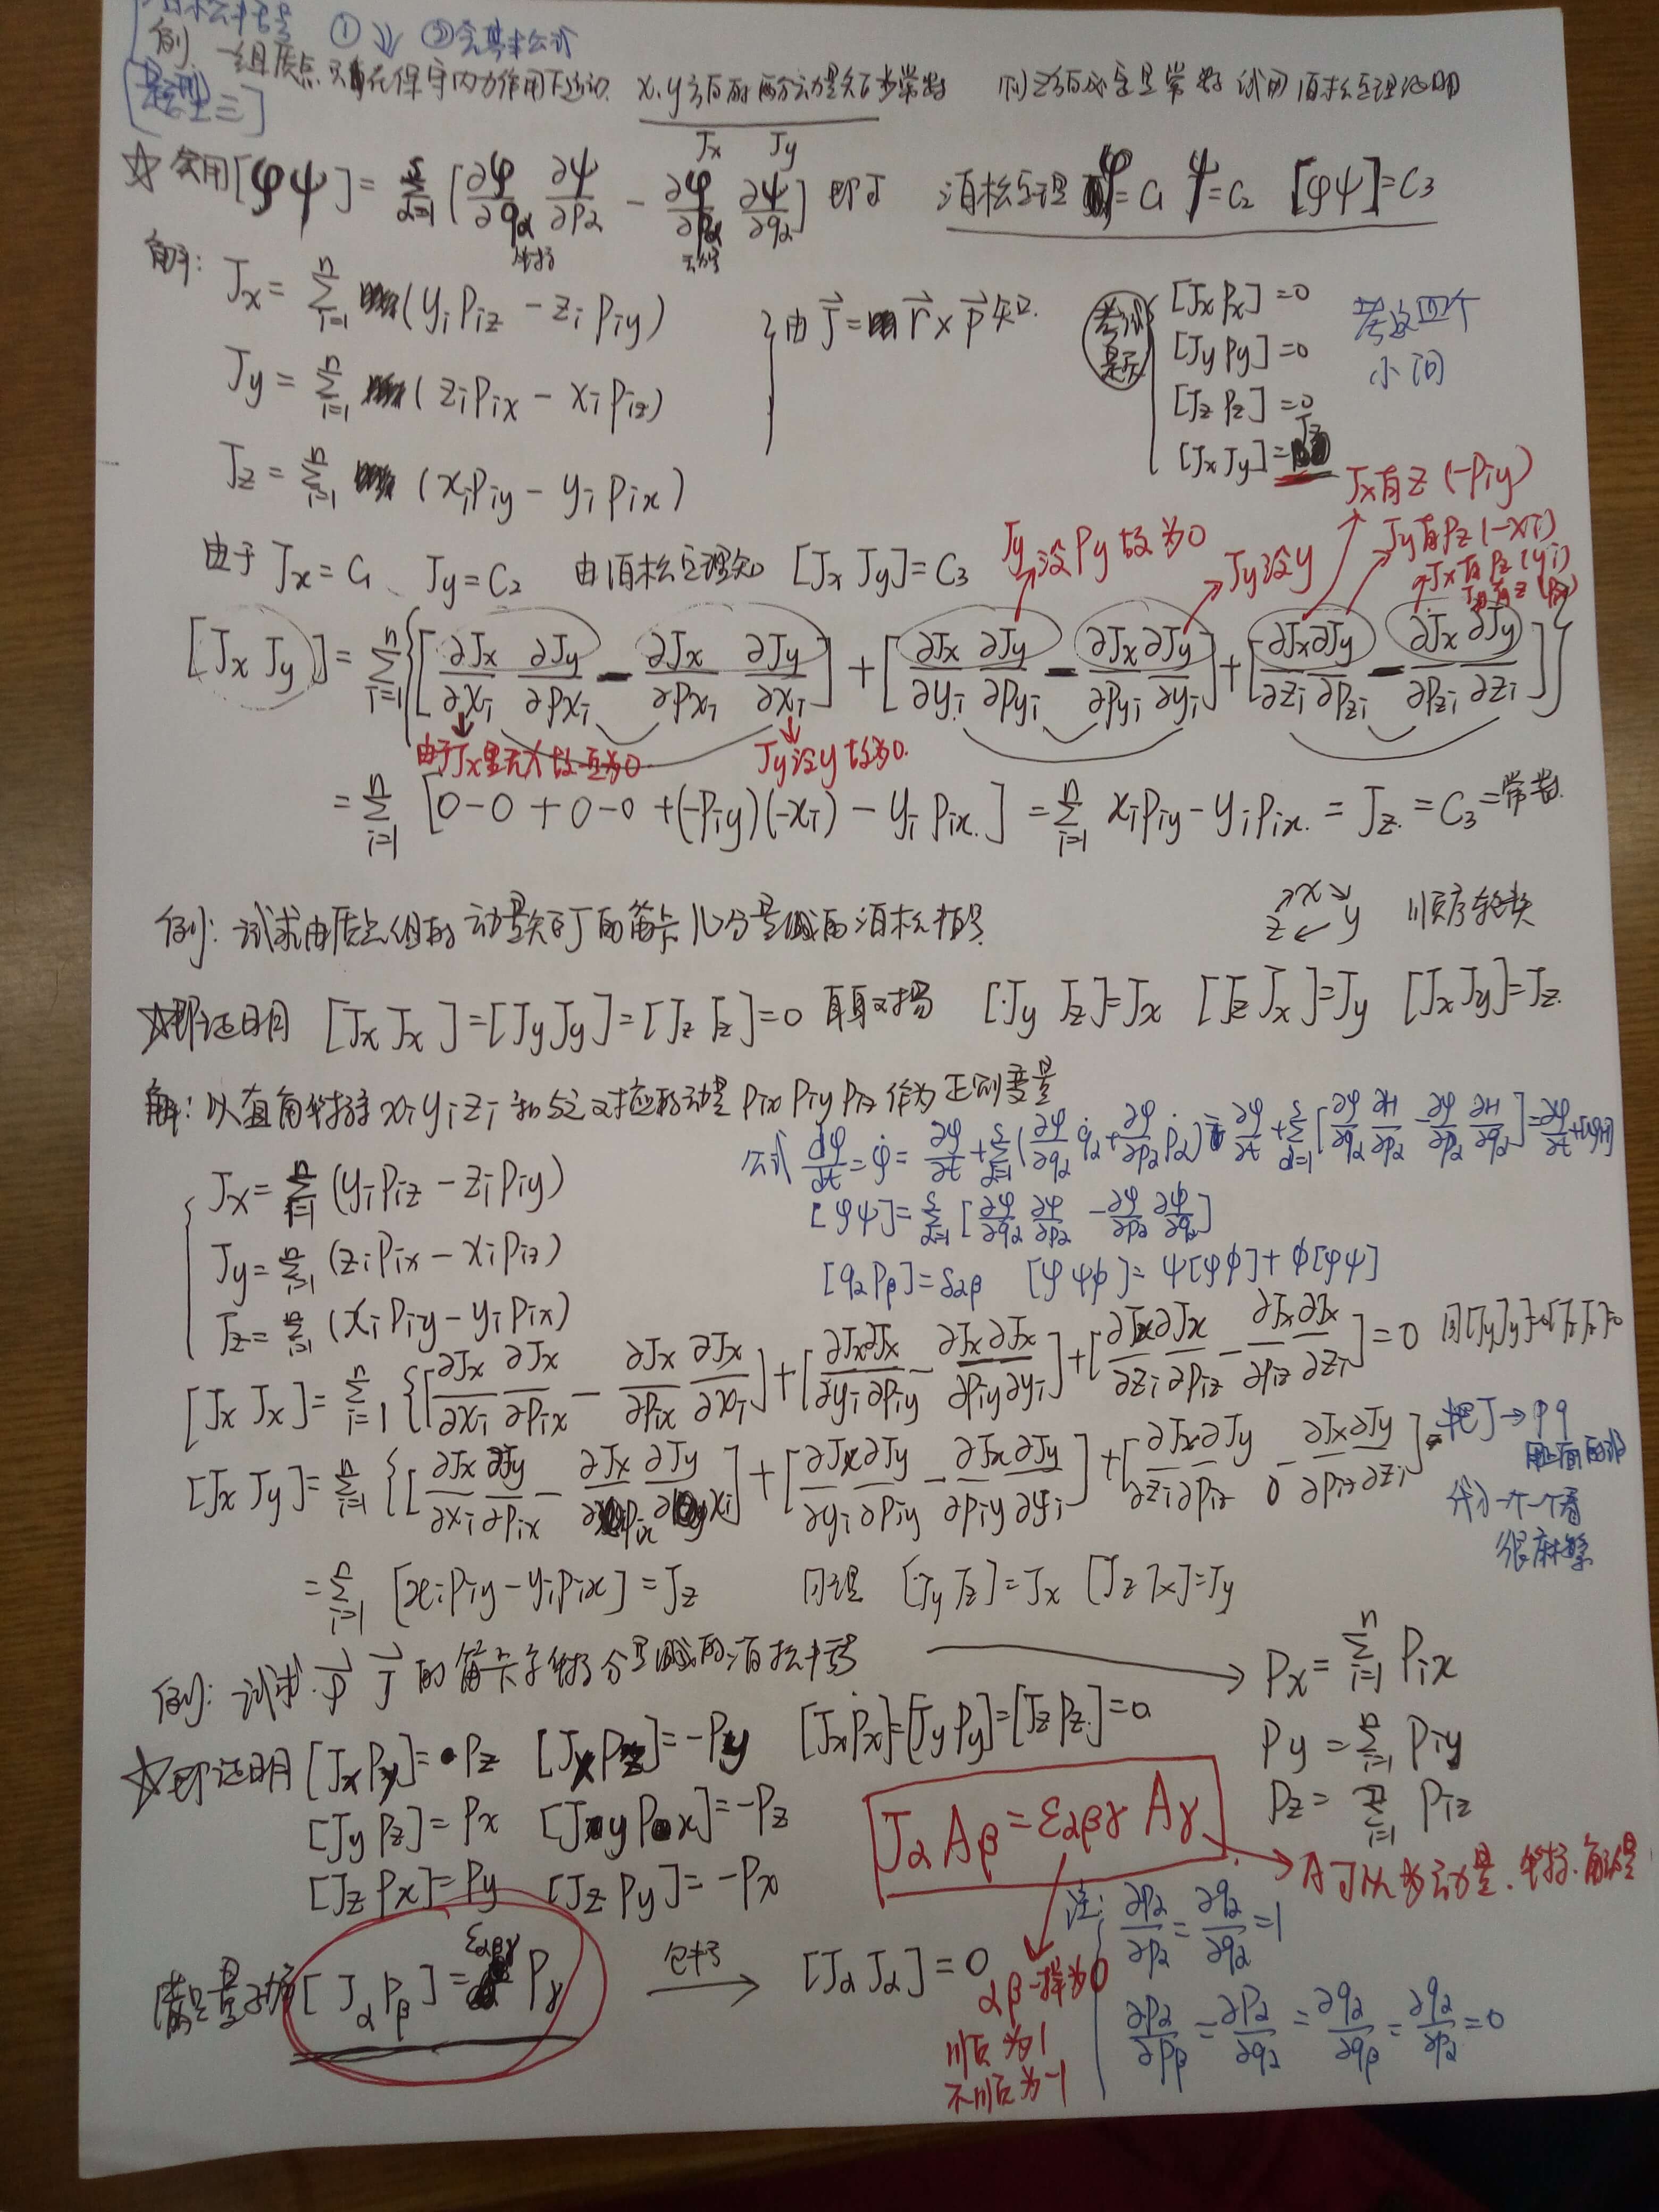 泊松括号 ① ↓ ②会其本公式
例. 一组质点只在保守内力作用下运动. x,y方向的两个动量矩为常数 则z方向必定是常数 试用泊松定理证明
[题型三]
Jx Jy
☆ 会用[φψ]=∑_{α=1}^{s}[∂φ/∂qα ∂ψ/∂pα - ∂φ/∂pα ∂ψ/∂qα] 即可 泊松定理 φ=C₁ ψ=C₂ [φψ]=C₃
坐标 动量
解: Jx=∑_{i=1}^{n}(yi piz - zi piy)
Jy=∑_{i=1}^{n}(zi pix - xi piz)
Jz=∑_{i=1}^{n}(xi piy - yi pix)
由 J⃗=r⃗×p⃗ 知.
考试是
[Jx Px]=0
[Jy Py]=0
[Jz Pz]=0
[Jx Jy]=Jz
考这四个
小问
由于 Jx=C₁ Jy=C₂ 由泊松定理知 [Jx Jy]=C₃
Jy没Py故为0
Jy没y
Jx有z(-piy)
Jy有Pz(-xi)
Jx有Pz(yi)
[Jx Jy]=∑_{i=1}^{n}{[∂Jx/∂xi ∂Jy/∂pxi - ∂Jx/∂pxi ∂Jy/∂xi]+[∂Jx/∂yi ∂Jy/∂pyi - ∂Jx/∂pyi ∂Jy/∂yi]+[∂Jx/∂zi ∂Jy/∂pzi - ∂Jx/∂pzi ∂Jy/∂zi]}
由于Jx里无x故直为0
Jy没y故为0.
=∑_{i=1}^{n}[0-0+0-0+(-piy)(-xi)-yi pix.]=∑_{i=1}^{n} xi piy-yi pix.=Jz.=C₃=常数.
例: 试求由质点组的动量矩J的笛卡儿分量组成的泊松括号.
x y z 顺序轮换
☆即证明 [Jx Jx]=[Jy Jy]=[Jz Jz]=0 [Jy Jz]=Jx [Jz Jx]=Jy [Jx Jy]=Jz.
解: 以直角坐标 xi yi zi 和与之对应的动量 pix piy piz 作为正则变量
公式 dφ/dt=φ̇=∂φ/∂t+∑_{α=1}^{s}(∂φ/∂qα q̇α+∂φ/∂pα ṗα)=∂φ/∂t+∑_{α=1}^{s}[∂φ/∂qα ∂H/∂pα - ∂φ/∂pα ∂H/∂qα]=∂φ/∂t+[φH]
Jx=∑_{i=1}^{n}(yi piz-zi piy)
[φψ]=∑_{α=1}^{s}[∂φ/∂qα ∂ψ/∂pα - ∂φ/∂pα ∂ψ/∂qα]
Jy=∑_{i=1}^{n}(zi pix-xi piz)
[qα pβ]=δαβ [φ ψϕ]=ψ[φϕ]+ϕ[φψ]
Jz=∑_{i=1}^{n}(xi piy-yi pix)
[Jx Jx]=∑_{i=1}^{n}{[∂Jx/∂xi ∂Jx/∂pix - ∂Jx/∂pix ∂Jx/∂xi]+[∂Jx/∂yi ∂Jx/∂piy - ∂Jx/∂piy ∂Jx/∂yi]+[∂Jx/∂zi ∂Jx/∂piz - ∂Jx/∂piz ∂Jx/∂zi]=0 同[JyJy]=0[JzJz]=0
[Jx Jy]=∑_{i=1}^{n}{[∂Jx/∂xi ∂Jy/∂pix - ∂Jx/∂pix ∂Jy/∂xi]+[∂Jx/∂yi ∂Jy/∂piy - ∂Jx/∂piy ∂Jy/∂yi]+[∂Jx/∂zi ∂Jy/∂piz - ∂Jx/∂piz ∂Jy/∂zi]=
把J→pq
用上面的
一个一个看
很麻烦
=∑_{i=1}^{n}[xi piy-yi pix]=Jz 同理 [Jy Jz]=Jx [Jz Jx]=Jy
例: 试求 P⃗ J⃗ 的笛卡尔坐标分量组成的泊松括号 → Px=∑_{i=1}^{n} Pix
Py=∑_{i=1}^{n} Piy
Pz=∑_{i=1}^{n} Piz
☆即证明 [Jx Py]=Pz [Jx Pz]=-Py [Jx Px]=[Jy Py]=[Jz Pz.]=0
[Jy Pz]=Px [Jy Px]=-Pz
[Jz Px]=Py [Jz Py]=-Px
[Jα Aβ=εαβγ Aγ → A可以为动量.坐标.角动量
αβ一样为0
顺为1
不顺为-1
注: ∂pα/∂pα=∂qα/∂qα=1
∂pα/∂pβ=∂pα/∂qα=∂qα/∂qβ=∂qα/∂pα=0
满足量子力 [Jα Pβ]=εαβγ Pγ → [Jα Jα]=0